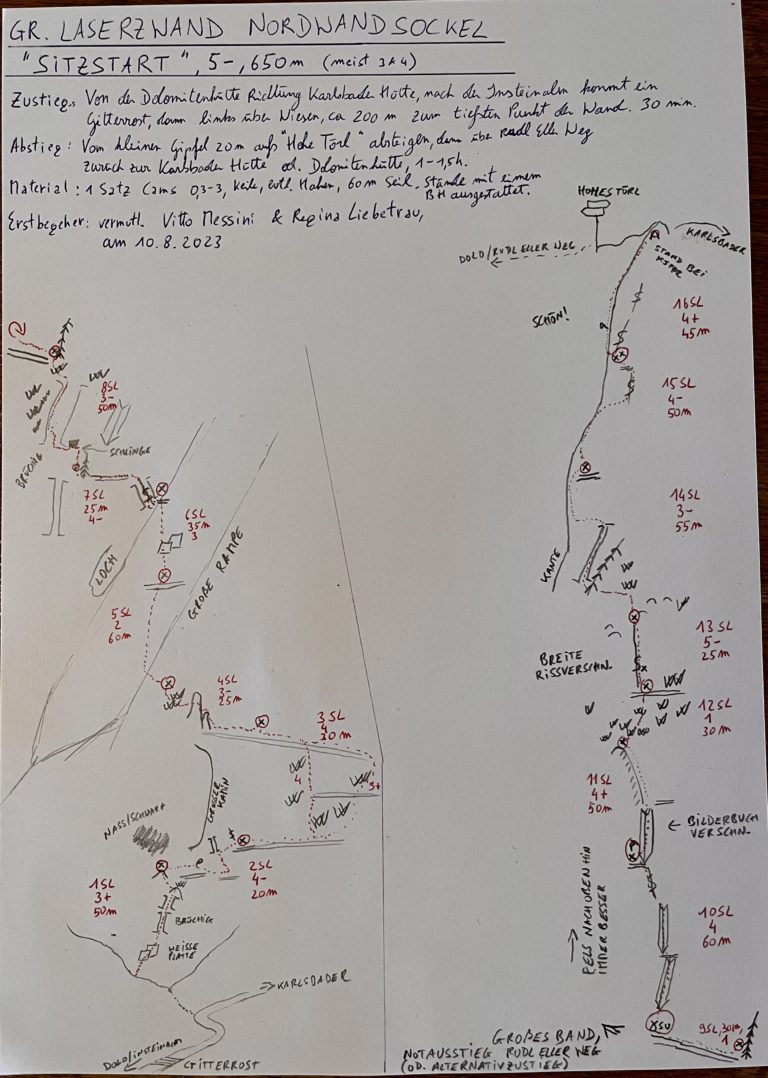 GR. LASERZWAND NORDWANDSOCKEL
"SITZSTART", 5-, 650m (meist 3&4)
Zustieg: Von der Dolomitenhütte Richtung Karlsbader Hütte, nach der Insteinalm kommt ein
Gitterrost, dann links über Wiesen, ca 200 m zum tiefsten Punkt der Wand. 30 min.
Abstieg: Vom kleinen Gipfel 20m aufs "Hohe Törl" absteigen, dann über Rudl Eller Weg
zurück zur Karlsbader Hütte od. Dolomitenhütte, 1-1,5h.
Material: 1 Satz Cams 0,3-3, Keile, evtl. Haken, 60m Seil. Stände mit einem
BH ausgestattet.
Erstbegeher: vermutl. Vitto Messini & Regina Liebetrau,
am 10.8.2023
HOHES TÖRL
KARLSBADER
DOLO/RUDL ELLER WEG
STAND BEI
SCHÖN!
16SL
4+
45m
15SL
4-
50m
14SL
3-
55m
KANTE
13SL
5-
25m
BREITE
RISSVERSCHN.
12SL
1
30m
11SL
4+
50m
BILDERBUCH
VERSCHN.
FELS NACH OBEN HIN
IMMER BESSER
10SL
4
60m
SU
9SL, 30m,
1
GROßES BAND,
NOTAUSSTIEG RUDL ELLER WEG
(OD. ALTERNATIVZUSTIEG)
8SL
3-
50m
SCHLINGE
BRÜCHIG
7SL
25m
4-
6SL
35m
3
LOCH
GROßE RAMPE
5SL
2
60m
4SL
3-
25m
3SL
4
30m
4
3+
GROSSER
KAMIN
NASS/SCHWARZ
2SL
4-
20m
1SL
3+
50m
BRÜCHIG
WEISSE
PLATTE
KARLSBADER
DOLO/INSTEINALM
GITTERROST